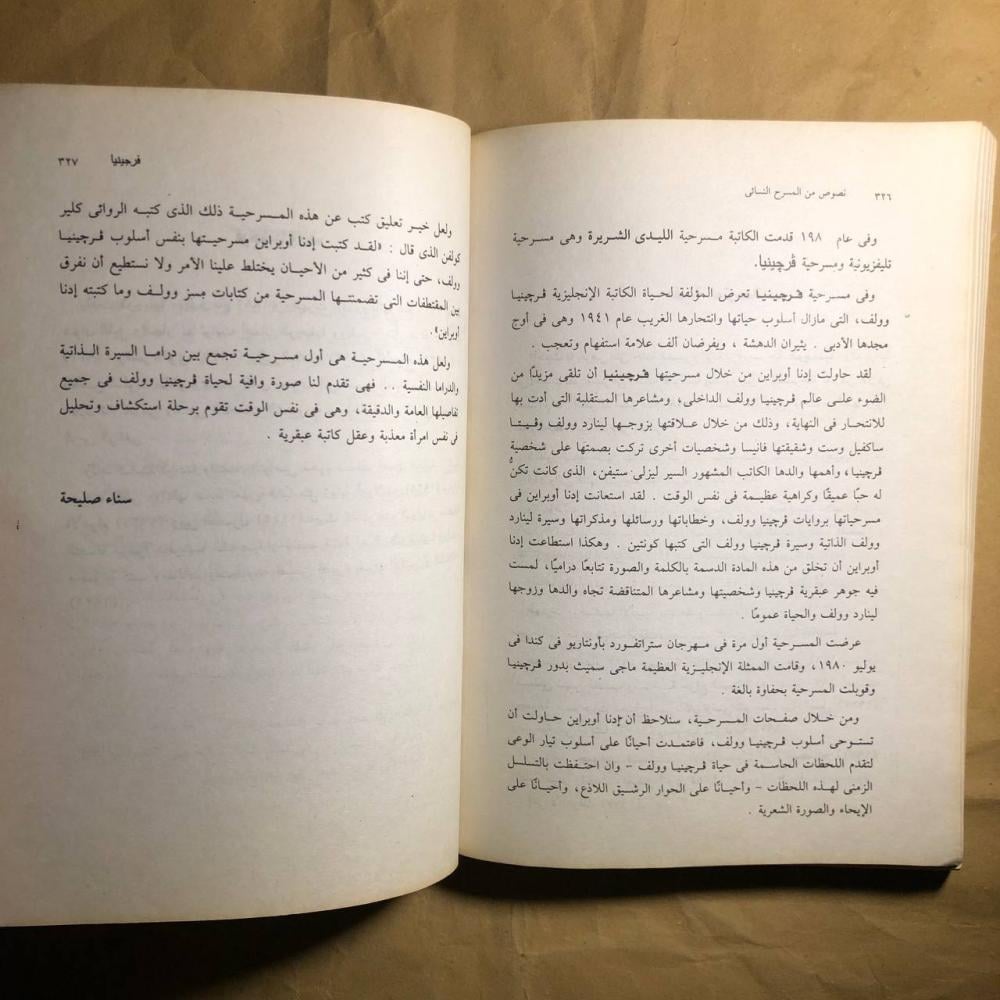 ٣٢٦ نصوص من المسرح النسائى
وفى عام ١٩٨ قدمت الكاتبة مسرحية الليدى الشريرة وهى مسرحية
تليفزيونية ومسرحية ڤرچينيا.
وفى مسرحية ڤرچينيا تعرض المؤلفة لحياة الكاتبة الإنجليزية ڤرچينيا
وولف، التى مازال أسلوب حياتها وانتحارها الغريب عام ١٩٤١ وهى فى أوج
مجدها الأدبى . يثيران الدهشة ، ويفرضان ألف علامة استفهام وتعجب .
لقد حاولت إدنا أوبراين من خلال مسرحيتها ڤرچينيا أن تلقى مزيدًا من
الضوء على عالم ڤرچينيا وولف الداخلى، ومشاعرها المتقلبة التى أدت بها
للانتحار فى النهاية، وذلك من خلال علاقتها بزوجها لينارد وولف وڤيتا
ساكفيل وست وشقيقتها فانيسا وشخصيات أخرى تركت بصمتها على شخصية
ڤرچينيا، وأهمها والدها الكاتب المشهور السير ليزلى ستيفن، الذى كانت تكنُّ
له حبًا عميقًا وكراهية عظيمة فى نفس الوقت . لقد استعانت إدنا أوبراين فى
مسرحياتها بروايات ڤرچينيا وولف، وخطاباتها ورسائلها ومذكراتها وسيرة لينارد
وولف الذاتية وسيرة ڤرچينيا وولف التى كتبها كونتين . وهكذا استطاعت إدنا
أوبراين أن تخلق من هذه المادة الدسمة بالكلمة والصورة تتابعًا دراميًا، لمست
فيه جوهر عبقرية ڤرچينيا وشخصيتها ومشاعرها المتناقضة تجاه والدها وزوجها
لينارد وولف والحياة عمومًا .
عرضت المسرحية أول مرة فى مهرجان ستراتفورد بأونتاريو فى كندا فى
يوليو ١٩٨٠، وقامت الممثلة الإنجليزية العظيمة ماجى سميث بدور ڤرچينيا
وقوبلت المسرحية بحفاوة بالغة .
ومن خلال صفحات المسرحية، سنلاحظ أن إدنا أوبراين حاولت أن
تستوحى أسلوب ڤرچينيا وولف، فاعتمدت أحيانًا على أسلوب تيار الوعى
لتقدم اللحظات الحاسمة فى حياة ڤرچينيا وولف - وان احتفظت بالتسلسل
الزمنى لهذه اللحظات - وأحيانًا على الحوار الرشيق اللاذع، وأحيانًا على
الإيحاء والصورة الشعرية .
فرجينيا ٣٢٧
ولعل خير تعليق كتب عن هذه المسرحية ذلك الذى كتبه الروائى كلير
كولفن الذى قال : «لقد كتبت إدنا أوبراين مسرحيتها بنفس أسلوب ڤرچينيا
وولف، حتى إننا فى كثير من الأحيان يختلط علينا الأمر ولا نستطيع أن نفرق
بين المقتطفات التى تضمنتها المسرحية من كتابات مسز وولف وما كتبته إدنا
أوبراين».
ولعل هذه المسرحية هى أول مسرحية تجمع بين دراما السيرة الذاتية
والدراما النفسية . . فهى تقدم لنا صورة وافية لحياة ڤرچينيا وولف فى جميع
تفاصيلها العامة والدقيقة، وهى فى نفس الوقت تقوم برحلة استكشاف وتحليل
فى نفس امرأة معذبة وعقل كاتبة عبقرية .
سناء صليحة